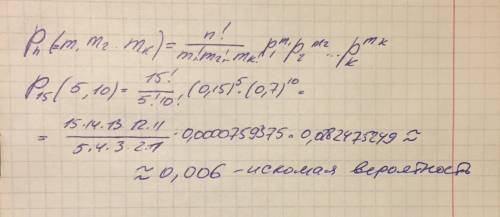 Pn(m₁ m₂ .. mк) = n! / m₁! m₂! .. mк! · p₁^m₁ p₂^m₂ ... pк^mк
P₁₅(5,10) = 15! / 5! 10! · (0,15)⁵ · (0,7)¹⁰ =
= 15·14·13·12·11 / 5·4·3·2·1 · 0,0000759375 · 0,0282475249 ≈
≈ 0,006 - искомая вероятность